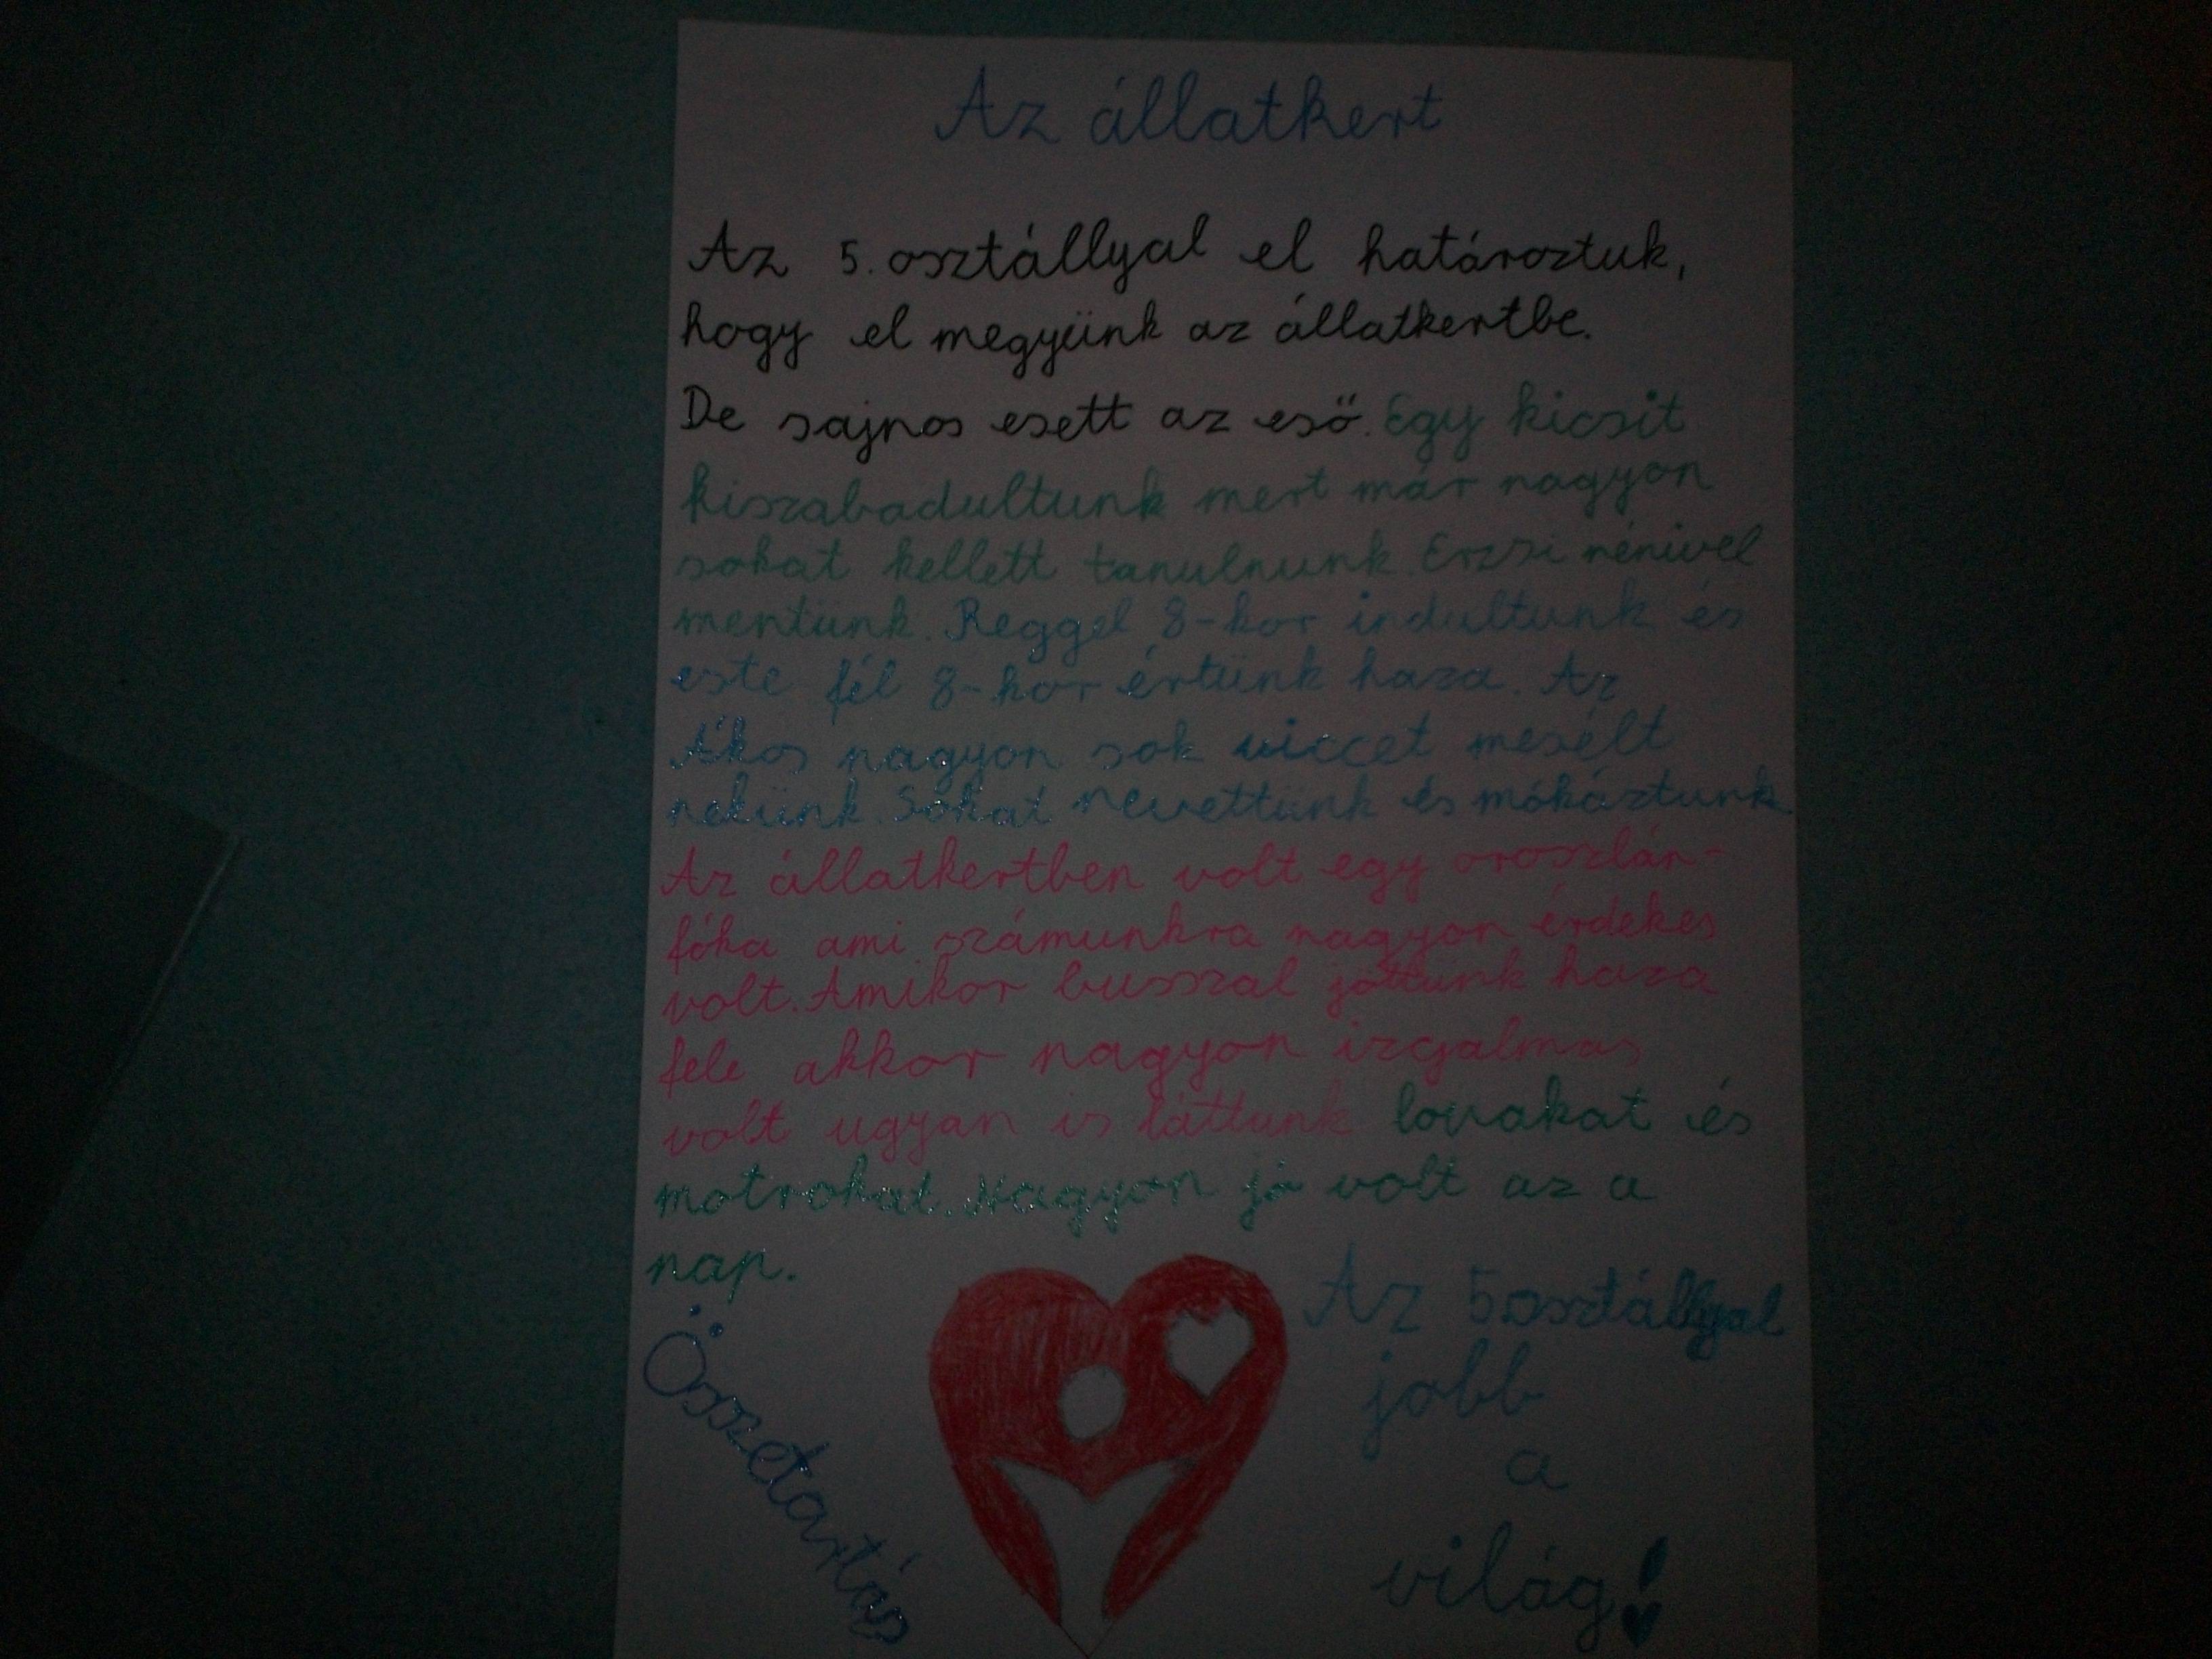 Az állatkert
Az 5. osztállyal el határoztuk,
hogy el megyünk az állatkertbe.
De sajnos esett az eső. Egy kicsit
kiszabadultunk mert már nagyon
sokat kellett tanulnunk. Erzsi nénivel
mentünk. Reggel 8-kor indultunk és
este fél 8-kor értünk haza. Az
Ákos nagyon sok viccet mesélt
nekünk. Sokat nevettünk és mókáztunk.
Az állatkertben volt egy oroszlán-
fóka ami számunkra nagyon érdekes
volt. Amikor busszal jöttünk haza
fele akkor nagyon izgalmas
volt ugyan is láttunk lovakat és
motrokat. Nagyon jó volt az a
nap.
Összetartás
Az 5 osztállyal
jobb
a
világ!